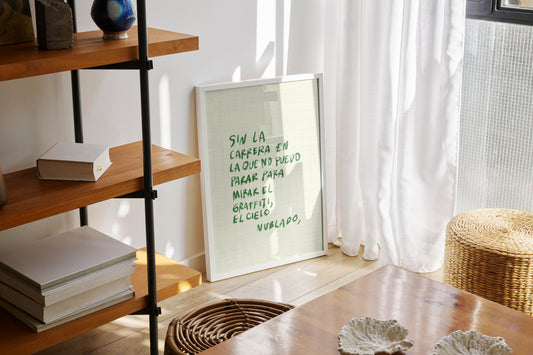 SIN LA
CARRERA EN
LA QUE NO PUEDO
PARAR PARA
MIRAR EL
GRAFFITI,
EL CIELO
NUBLADO,